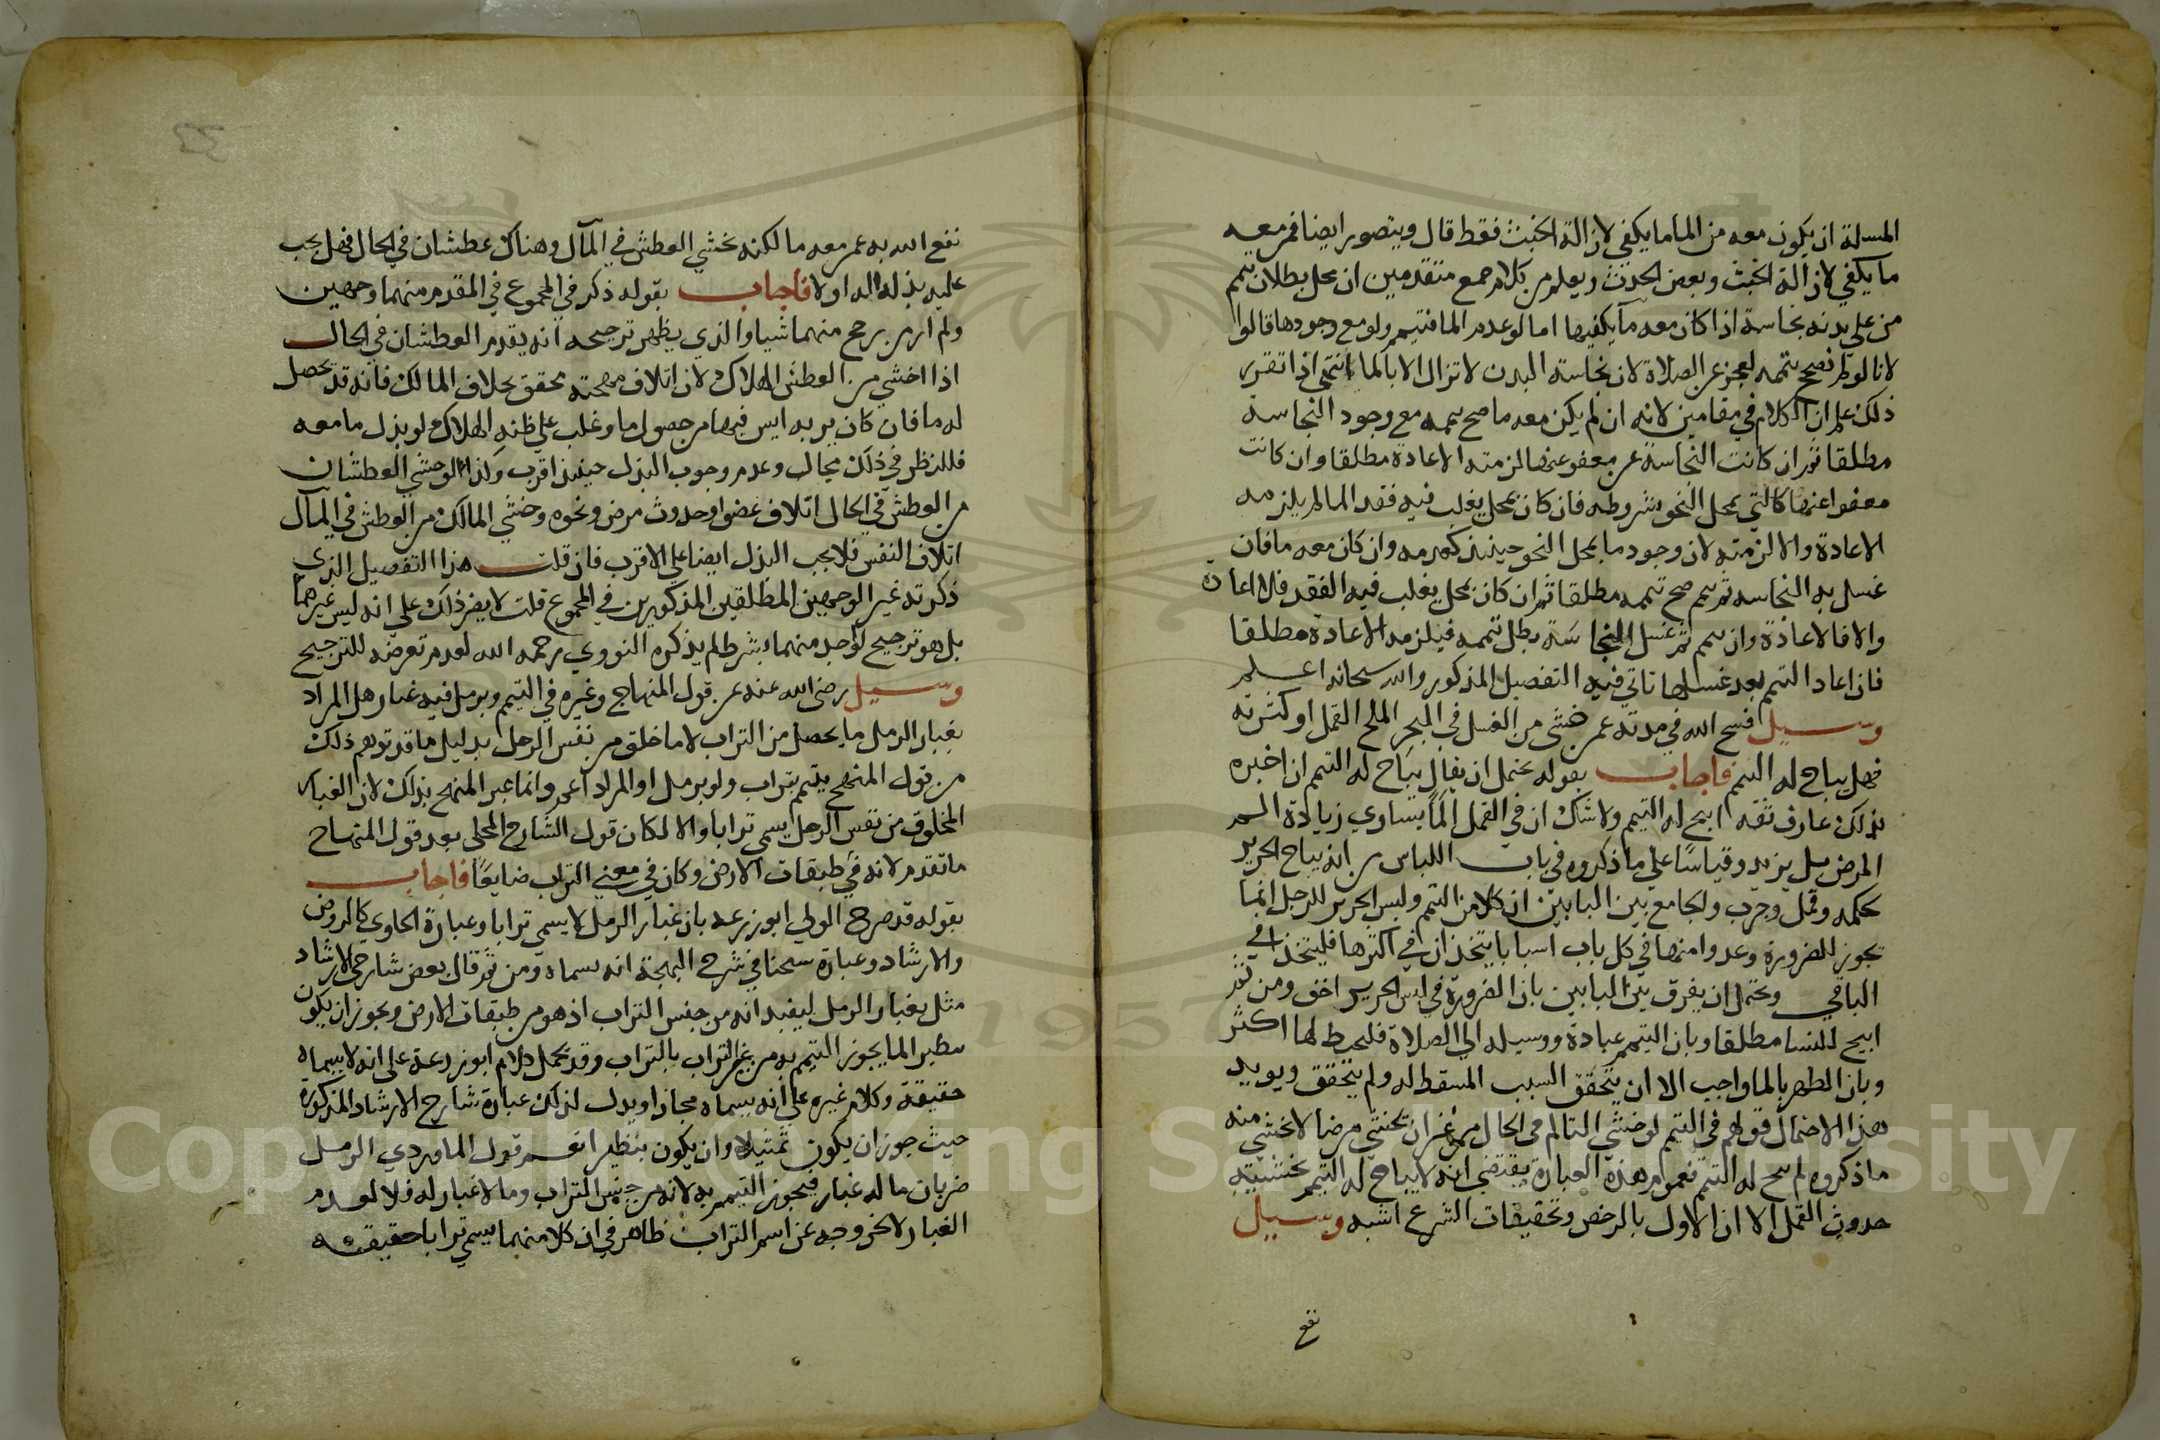 المسلة ان يكون معه من الما ما يكفي لازالة الخبث فقط قال ويتصور ايضا فمر معه
ما يكفي لازالة الخبث وبعض الحدث ويعلم من كلام جمع متقدمين ان محل بطلان تيمم
من على بدنه نجاسة اذا كان معه ما يكفيها اما لو عدم الما فتيمم ولو مع وجودها قالوا
لانا لو لم نصحح تيممه لعجز عن الصلاة لان نجاسة البدن لا تزال الا بالما انتهى اذا تقرر
ذلك علم ان الكلام في مقامين لانه ان لم يكن معه ما صح تيممه مع وجود النجاسة
مطلقا ثم ان كانت النجاسة غير معفو عنها لزمته الاعادة مطلقا وان كانت
معفوا عنها كالتي بمحل النجو بشروطه فان كان بمحل يغلب فيه فقد الما لم يلزمه
الاعادة والا لزمته لان وجود ما بمحل النجو حينئذ كعدمه وان كان معه ما فان
غسل به النجاسه ثم تيمم صح تيممه مطلقا ثم ان كان بمحل يغلب فيه الفقد فلا اعادة
والا فالاعادة وان تيمم ثم غسل النجاسة بطل تيممه فيلزمه الاعادة مطلقا
فان اعاد التيمم بعد غسلها تاتي فيه التفصيل المذكور والله سبحانه اعلم
وسيل افسح الله في مدته عمن خشى من الغسل في البحر الملح القمل او كثرته
فهل يباح له التيمم فاجاب بقوله يحتمل ان يقال يباح له التيمم ان اخبره
بذلك عارف ثقه ابيح له التيمم ولا شك ان في القمل الما يساوي زيادة الم
المرض بل يزيد وقياسا على ما ذكروه في باب اللباس من انه يباح الحرير
لحكمه وقمل وجرب والجامع بين البابين ان كلا من التيمم ولبس الحرير للرجل انما
تجوز للضرورة وعدوا منها في كل باب اسبابا يتخذان في اكثرها فليتخذا في
الباقي ويحتمل ان يفرق بين البابين بان الضرورة في لبس الحرير اخف ومن ثم
ابيح للنسا مطلقا وبان التيمم عبادة ووسيله الى الصلاة فليحط لها اكثر
وبان الطهر بالما واجب الا ان يتحقق السبب المسقط له ولم يتحقق ويويد
هذا الاحتمال قولهم في التيمم لو خشي التالم في الحال من غير ان يخشى مرضا لا يخشى منه
ما ذكروه لم يبح له التيمم فعموم هذه العبارة يقتضي انه لا يباح له التيمم بخشيته
حدوث القمل الا ان الاول بالرخص وتخفيفات الشرع اشبه وسيل
نفع
نفع الله به عمن معه ما لكنه يخشي العطش في المآل وهناك عطشان في الحال فهل يجب
عليه بذله له اولا فاجاب بقوله ذكر في المجموع في المقدم منهما وجهين
ولم ار من رجح منهما شيا والذي يظهر ترجيحه انه يقدم العطشان في الحال
اذا خشي من العطش الهلاك لان اتلاف مهجته محقق بخلاف المالك فانه قد يحصل
له ما فان كان بريه ايس فيها من حصول ما وغلب على ظنه الهلاك لو بذل ما معه
فللنظر في ذلك مجال وعدم وجوب البذل حينئذ اقرب وكذا لو خشي العطشان
من العطش في الحال اتلاف عضو او حدوث مرض ونحوه وخشي المالك من العطش في المآل
اتلاف النفس فلا يجب البذل ايضا على الاقرب فان قلت هذا التفصيل الذي
ذكرته غير الوجهين المطلقين المذكورين في المجموع قلت لا يضر ذلك على انه ليس غيرهما
بل هو ترجيح لواحد منهما بشرط لم يذكره النووي رحمه الله لعدم تعرضه للترجيح
وسيل رضى الله عنه عن قول المنهاج وغيره في التيمم وبرمل فيه غبار هل المراد
بغبار الرمل ما يحصل من التراب لا ما خلق من نفس الرمل بدليل ما قد توهم ذلك
من قول المنهج يتيمم بتراب ولو برمل او المراد اعم وانما عبر المنهج بذلك لان الغبار
المخلوق من نفس الرمل يسمى ترابا والا لكان قول الشارح المحلى بعد قول المنهاج
ما تقدم لانه في طبقات الارض وكان في معنى التراب ضايعا فاجاب
بقوله قد صرح الولي ابو زرعه بان غبار الرمل لا يسمى ترابا وعبارة الحاوي كالروض
والارشاد وعبارة شيخنا في شرح البهجة انه يسماه ومن ثم قال بعض شارحي الارشاد
مثل بغبار الرمل ليفيد انه من جنس التراب اذ هو من طبقات الارض ويجوز ان يكون
نظير الما يجوز التيمم به من غير التراب بالتراب وقد يحمل كلام ابو زرعة على انه لا يسماه
حقيقة وكلام غيره على انه يسماه مجازا ويدل لذلك عبارة شارح الارشاد المذكورة
حيث جوز ان يكون تمثيلا وان يكون تنظيرا نعم قول الماوردي الرمل
ضربان ما له غبار فيجوز التيمم به لانه من جنس التراب وما لا غبار له فلا لعدم
الغبار لا لخروجه عن اسم التراب ظاهر في ان كلا منهما يسمى ترابا حقيقة